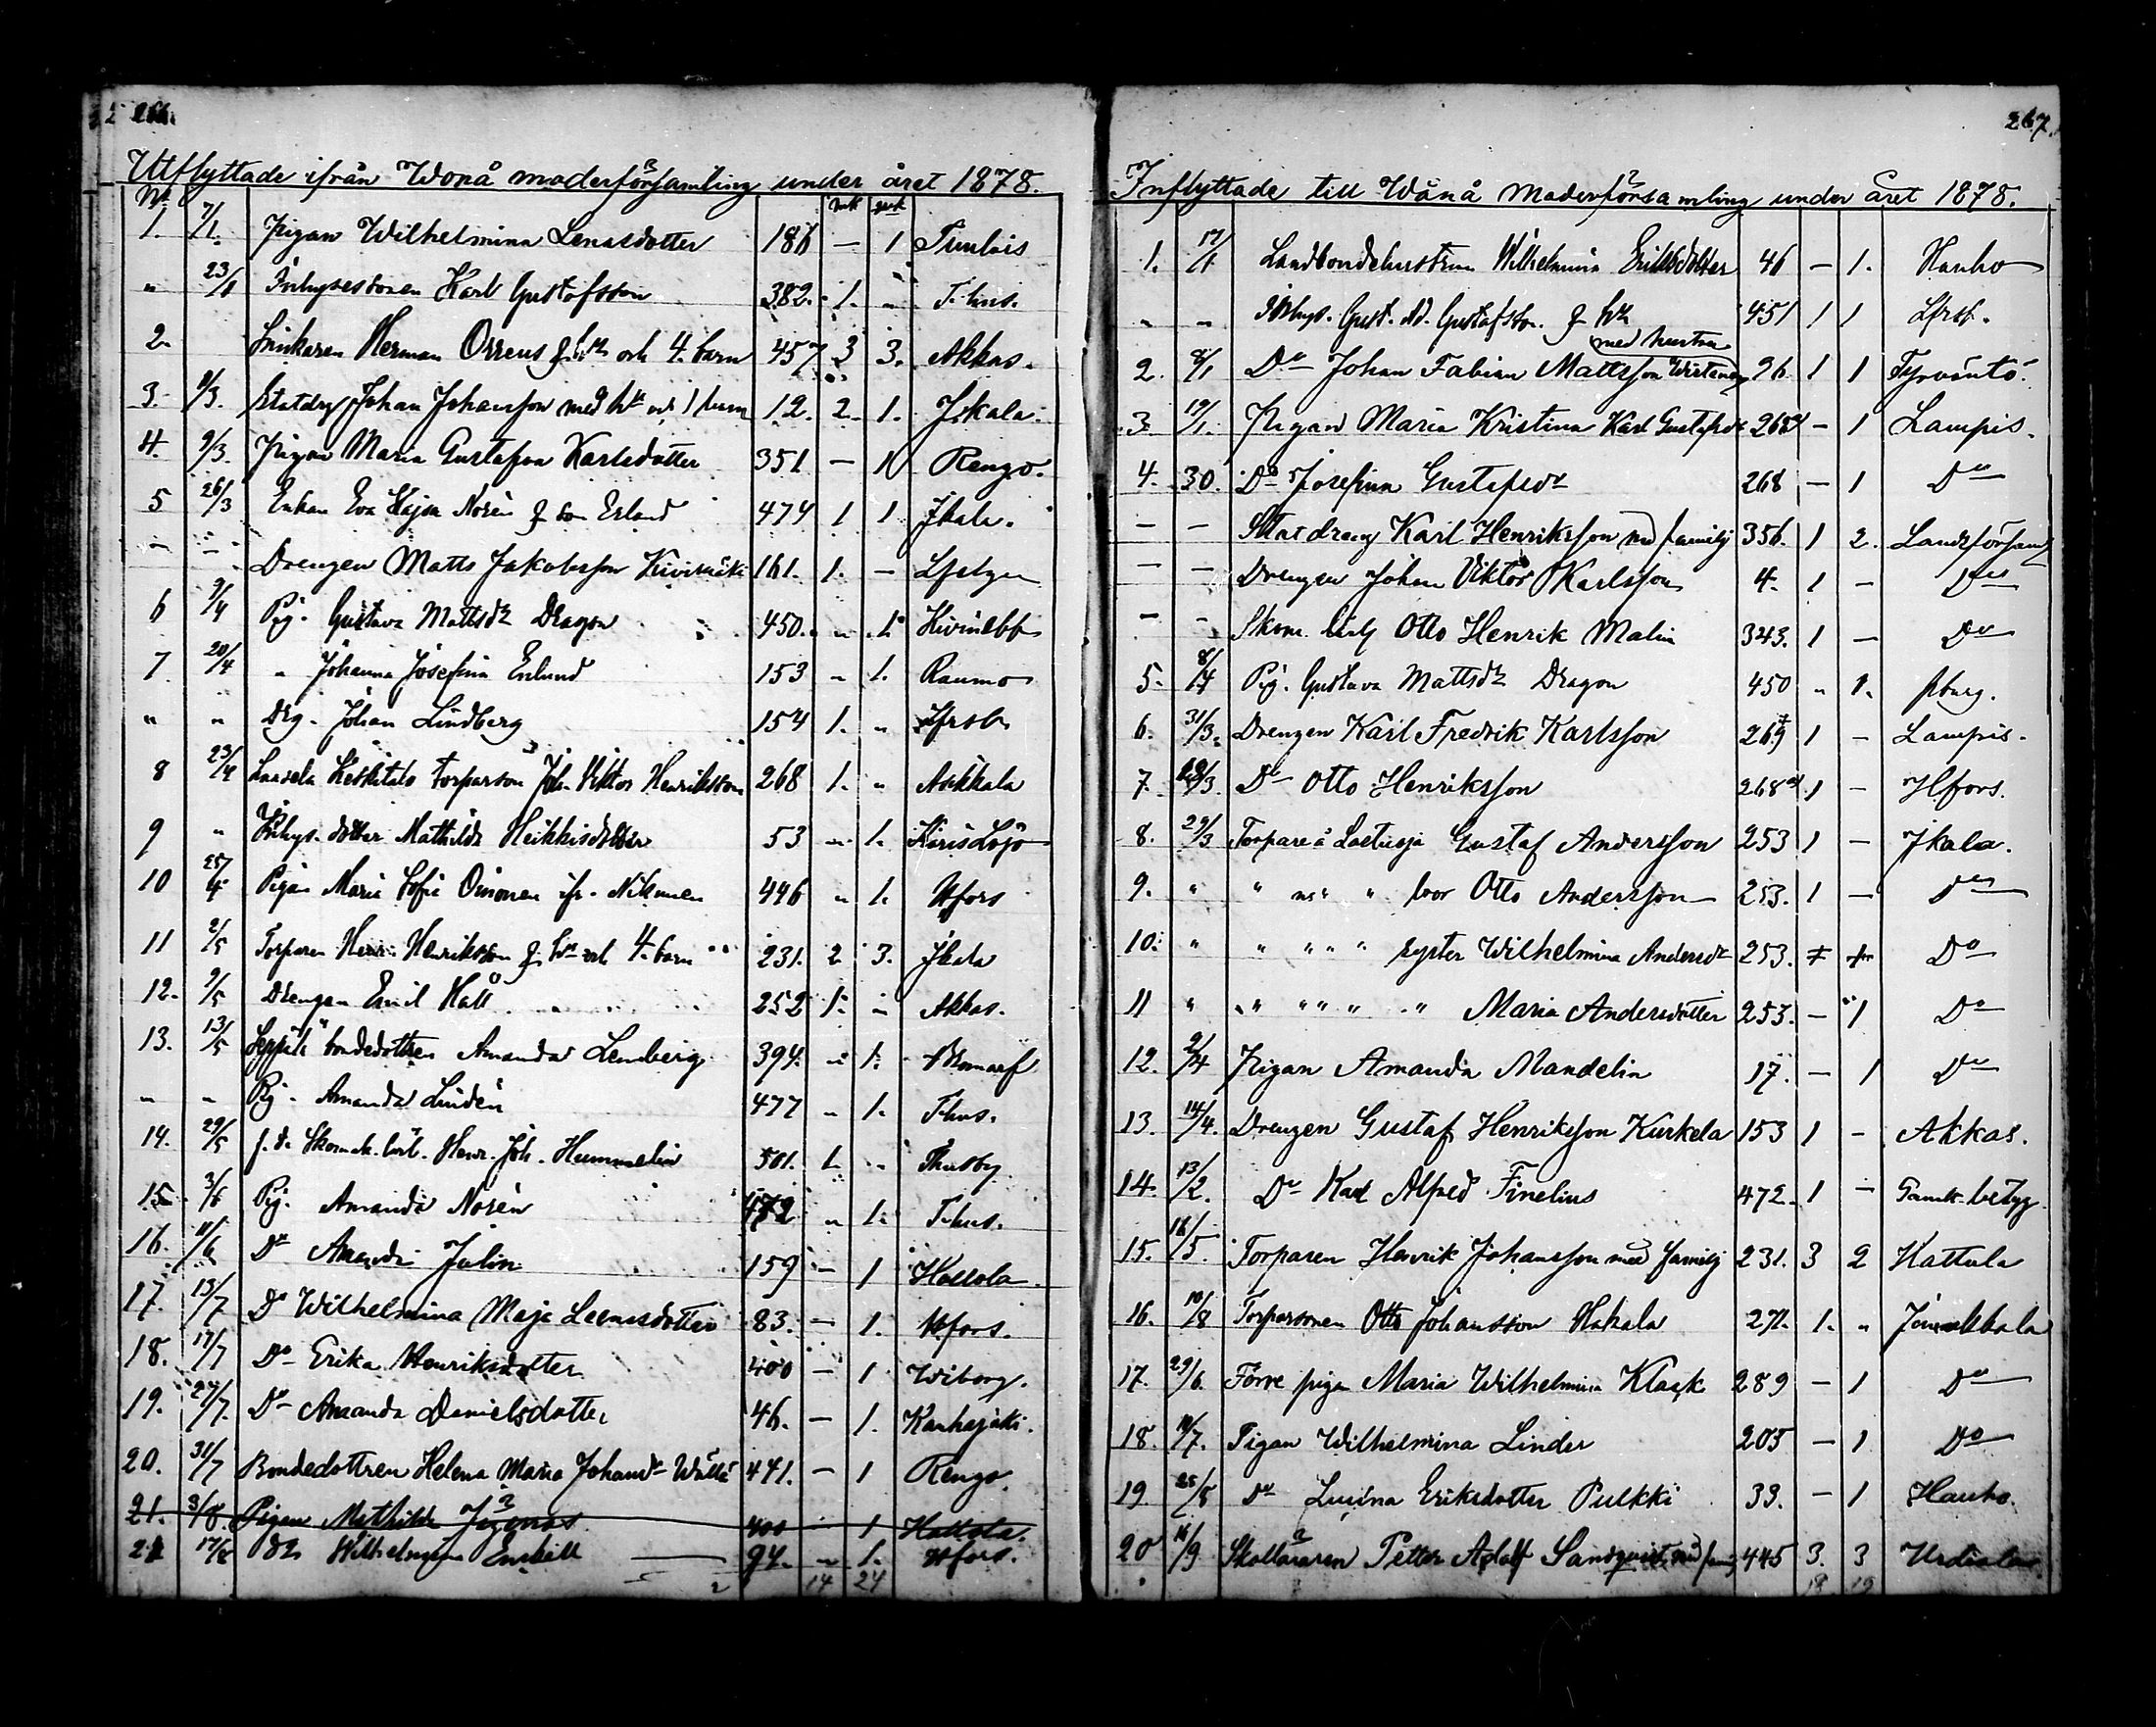 266.
Utflyttade ifrån Wånå moderförsamling under året 1878.
No mk qvk
1. 7/1. Pigan Wilhelmina Lenasdotter 186 — 1 Tuulois
" 23/1 Inhysesonen Karl Gustafsson 382. 1. " T.hus.
2. Herman Orrenius f. hu och 4. barn 457 3 3. Akkas.
3. 9/3. Statdrg Johan Johansson med hu och 1 barn 12. 2. 1. J.kala.
4. 9/3. Pigan Maria Gustafva Karlsdotter 351 — 1 Rengo.
5 26/3 Enkan Eva Kajsa Norén f son Erland 474 1 1 Jkala.
— — Drengen Matts Jakobsson Kivimäki 161. 1. —
6 9/4 Pig. Gustava Mattsdr Dragon 450. " 1.
7 20/4 " Johanna Josefina Enlund 153 " 1. Raumo
" " Drg. Johan Lindberg 154 1. " Lfrsb.
8 23/4 torparson Joh. Viktor Henriksson 268 1. " Askkala
9 " Inhys. dotter Mathilda Heikkisdotter 53 " 1. Karislojo
10 25/4 Pigan Maria Sofia Oinonen 446 " 1. Hfors
11 2/5 Torparen Henr. Henriksson f. hu och 4. barn 231. 2 3. Jkala
12. 9/5 Drengen Emil Häll 252 1. — Akkas.
13. 13/5 Seppälä bondedottren Amanda Lemberg 394. — 1. Bromarf
" " Pig. Amanda Lindén 477 " 1. T.hus.
14. 29/5 f. d. Skomak. lärl. Henr. Joh. Hummelin 501. 1. " Thusby
15. 3/6 Pig. Amanda Norén 472 " 1. T.hus.
16. 11/6 Do Amanda Julin 159 — 1 Hollola.
17. 13/7 Do Wilhelmina Maja Leenasdotter 83. — 1. Hfors.
18. 17/7 Do Erika Henriksdotter 400 — 1 Wiborg.
19. 27/7. Do Amanda Danielsdotter 46. — 1. Kauhajoki.
20. 31/7 Bondedottren Helena Maria Johansdr 441. — 1 Rengo.
21. 3/8. Pigan Mathilda 400 1 Hattola.
21 17/8 Do Wilhelmina Enskell 94. " 1. Hfors.
14 24
267.
Inflyttade till Wånå Moderförsamling under året 1878.
1. 17/1 Landbondehustrun Wilhelmina Eriksdotter 46 — 1. Hauho
" " Inhys. Gust. Ad. Gustafsson f hu 451 1 1 Lfrsf.
med hustru
2. 8/1 Do Johan Fabian Mattsson Wirtanen 26. 1 1 Tyrväntö.
3. 19/1. Pigan Maria Kristina Karl Gustafsdr 268 — 1 Lampis.
4. 30. Do Josefina Gustafsdr 268 — 1 Do
— — Statdreng Karl Henriksson med familj 356. 1 2. Landsförsaml
— — Drengen Johan Viktor Karlsson 4. 1 — Do
— — Skom. lärl Otto Henrik Malin 343. 1 — Do
5. 8/4 Pig. Gustava Mattsdr Dragon 450 " 1. Pburg.
6. 31/3. Drengen Karl Fredrik Karlsson 267 1 — Lampis.
7. Do Otto Henriksson 268 1 — Hfors.
8. 29/3 Torpare å Laetuoja Gustaf Andersson 253 1 — Jkala.
9. " " " " bror Otto Andersson 253. 1 — Do
10. " " " " " syster Wilhelmina Andersdr 253. Do
11 " " " " " " Maria Andersdotter 253. — 1 Do
12. 2/4 Pigan Amanda Mandelin 17. — 1 Do
13. 14/4. Drengen Gustaf Henriksson Kurkela 153 1 — Akkas.
14. 13/2. Do Karl Alfred Finelius 472. 1 — betyg
15. 16/5. Torparen Henrik Johansson med familj 231. 3 2 Hattula
16. 10/8 Torparsonen Otto Johansson Hakala 271. 1. " Janakkala
17. 29/6. Förre pigan Maria Wilhelmina Klack 289 — 1 Do
18. 10/7. Pigan Wilhelmina Linder 205 — 1 Do
19 25/8 Do Lusina Eriksdotter Pulkki 33. — 1 Hauho.
20 16/9 Skolläraren Petter Adolf Sandqvist med fam. 445 3. 3 Urdiala.
18 19